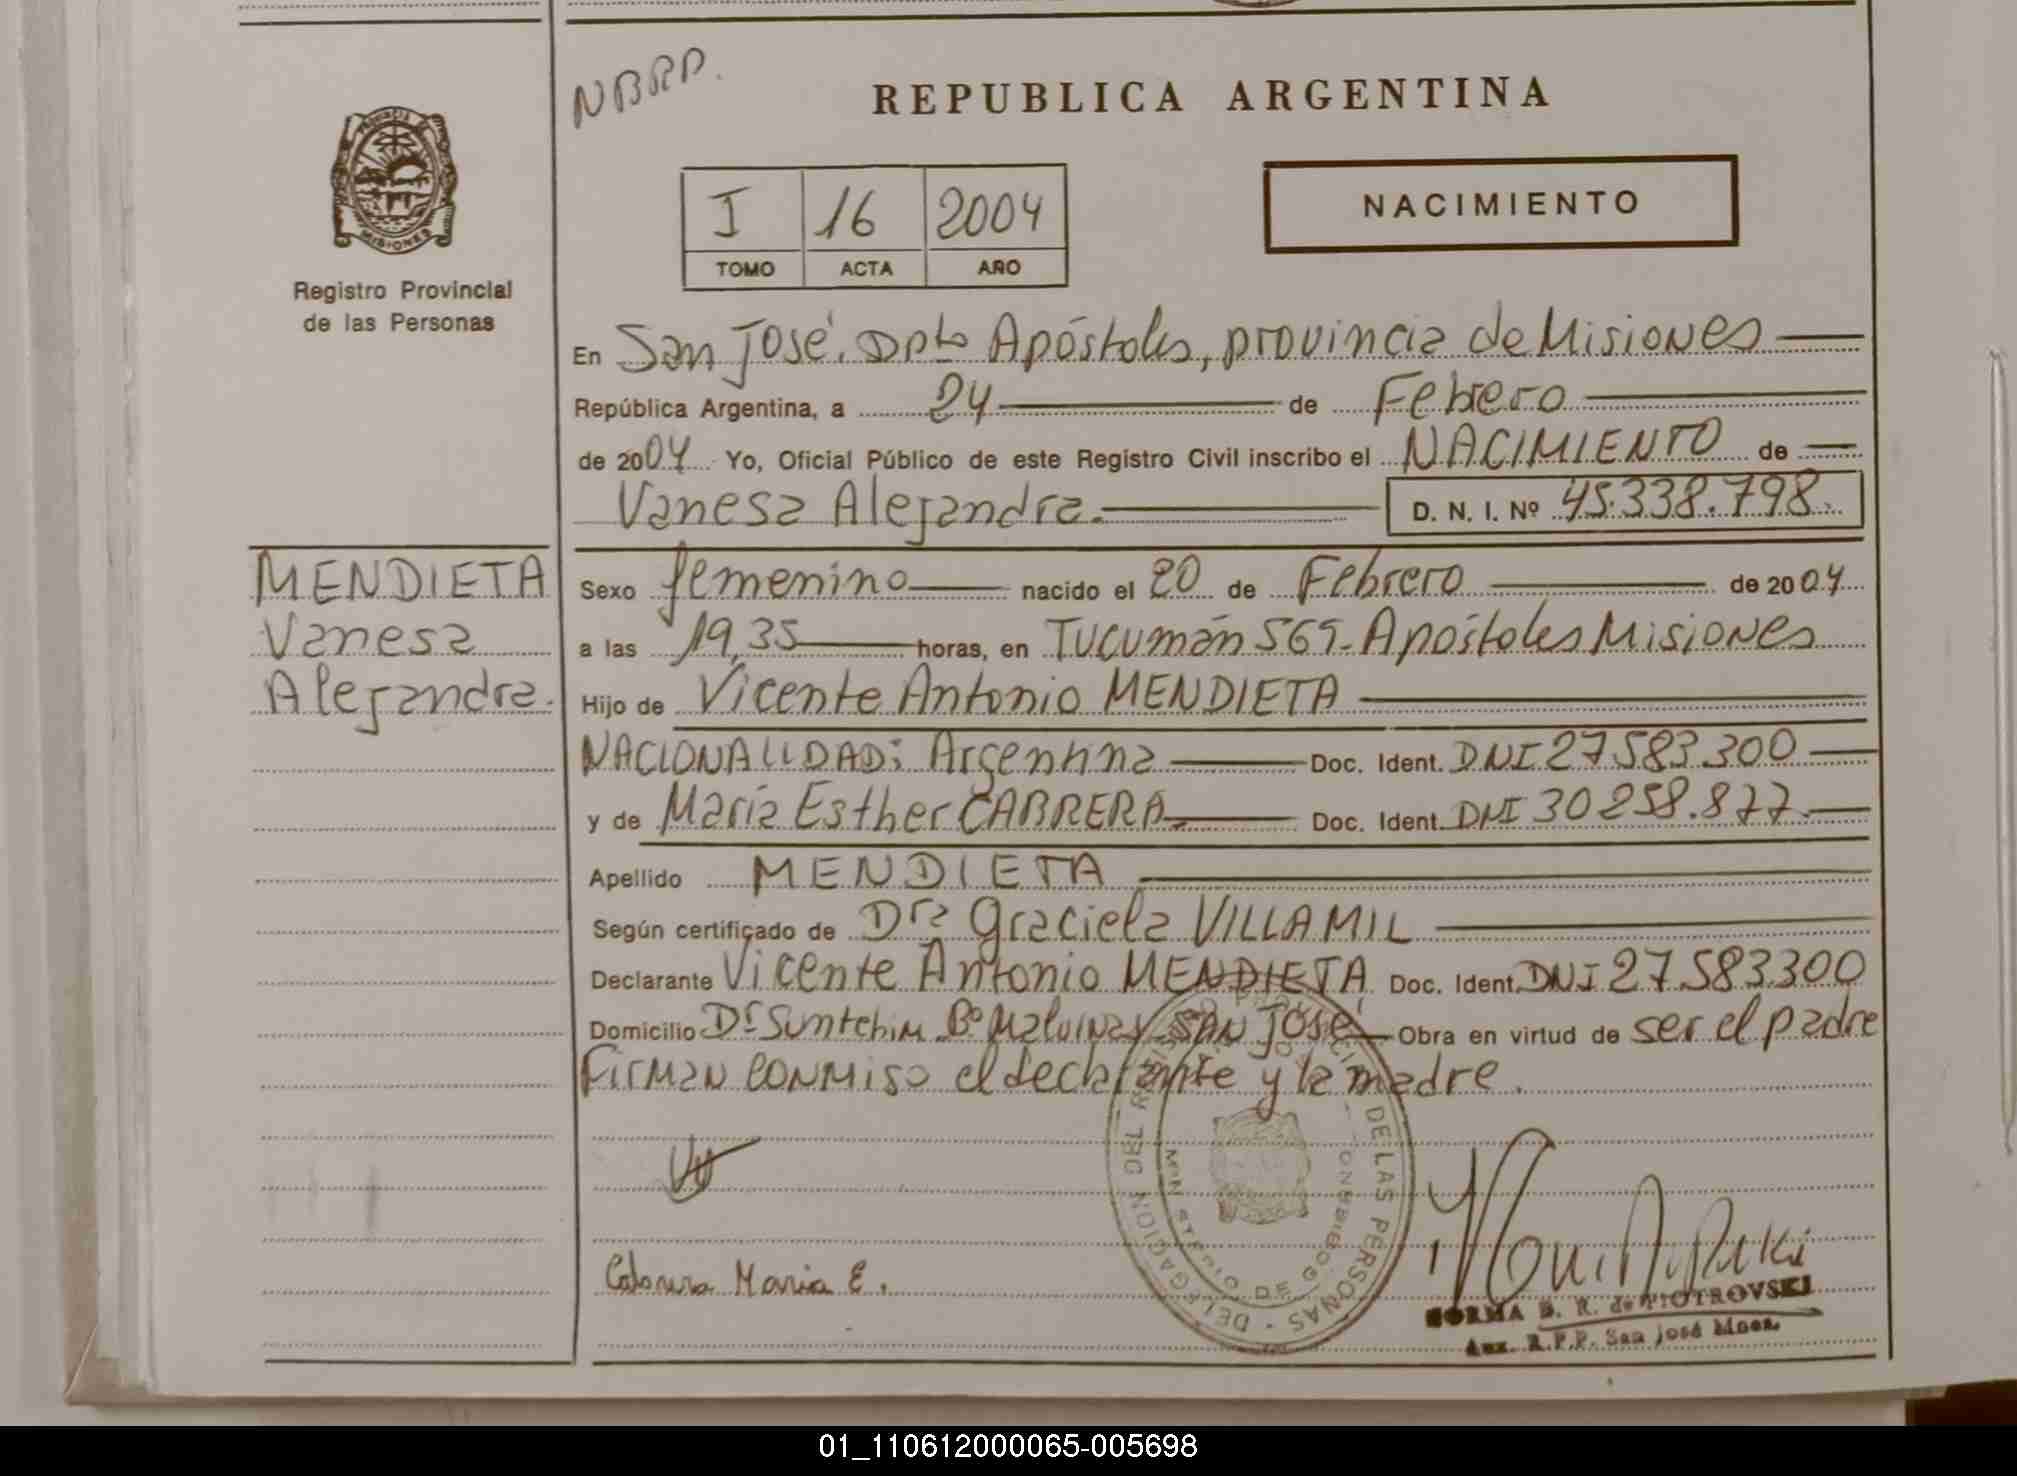 NBRD.
REPUBLICA ARGENTINA
PROVINCIA DE MISIONES
Registro Provincial
de las Personas
I 16 2004
TOMO ACTA AÑO
NACIMIENTO
En San José. Dpto Apóstoles, provincia de Misiones
República Argentina, a 24 de Febrero
de 2004 Yo, Oficial Público de este Registro Civil inscribo el NACIMIENTO de
Vanesa Alejandra. D. N. I. Nº 45.338.798.
MENDIETA
Vanesa
Alejandra.
Sexo femenino nacido el 20 de Febrero de 2004
a las 19,35 horas, en Tucumán 565- Apóstoles Misiones
Hijo de Vicente Antonio MENDIETA
NACIONALIDAD: Argentina Doc. Ident. DNI 27583.300
y de María Esther CABRERA Doc. Ident. DNI 30258.877
Apellido MENDIETA
Según certificado de Dra Graciela VILLAMIL
Declarante Vicente Antonio MENDIETA Doc. Ident. DNI 27583300
Domicilio Dr Bº Malvinas SAN José Obra en virtud de ser el padre
Firman conmigo el declarante y la madre.
DE LAS PERSONAS - DELEGACION DEL
MINISTERIO DE GOBIERNO
Maria E.
NORMA B. R. de PIOTROVSKI
Aux. R.P.P. San José Mnes.
01_110612000065-005698